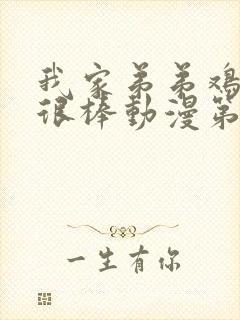 我家弟弟鸡
很棒動漫第
一生有你